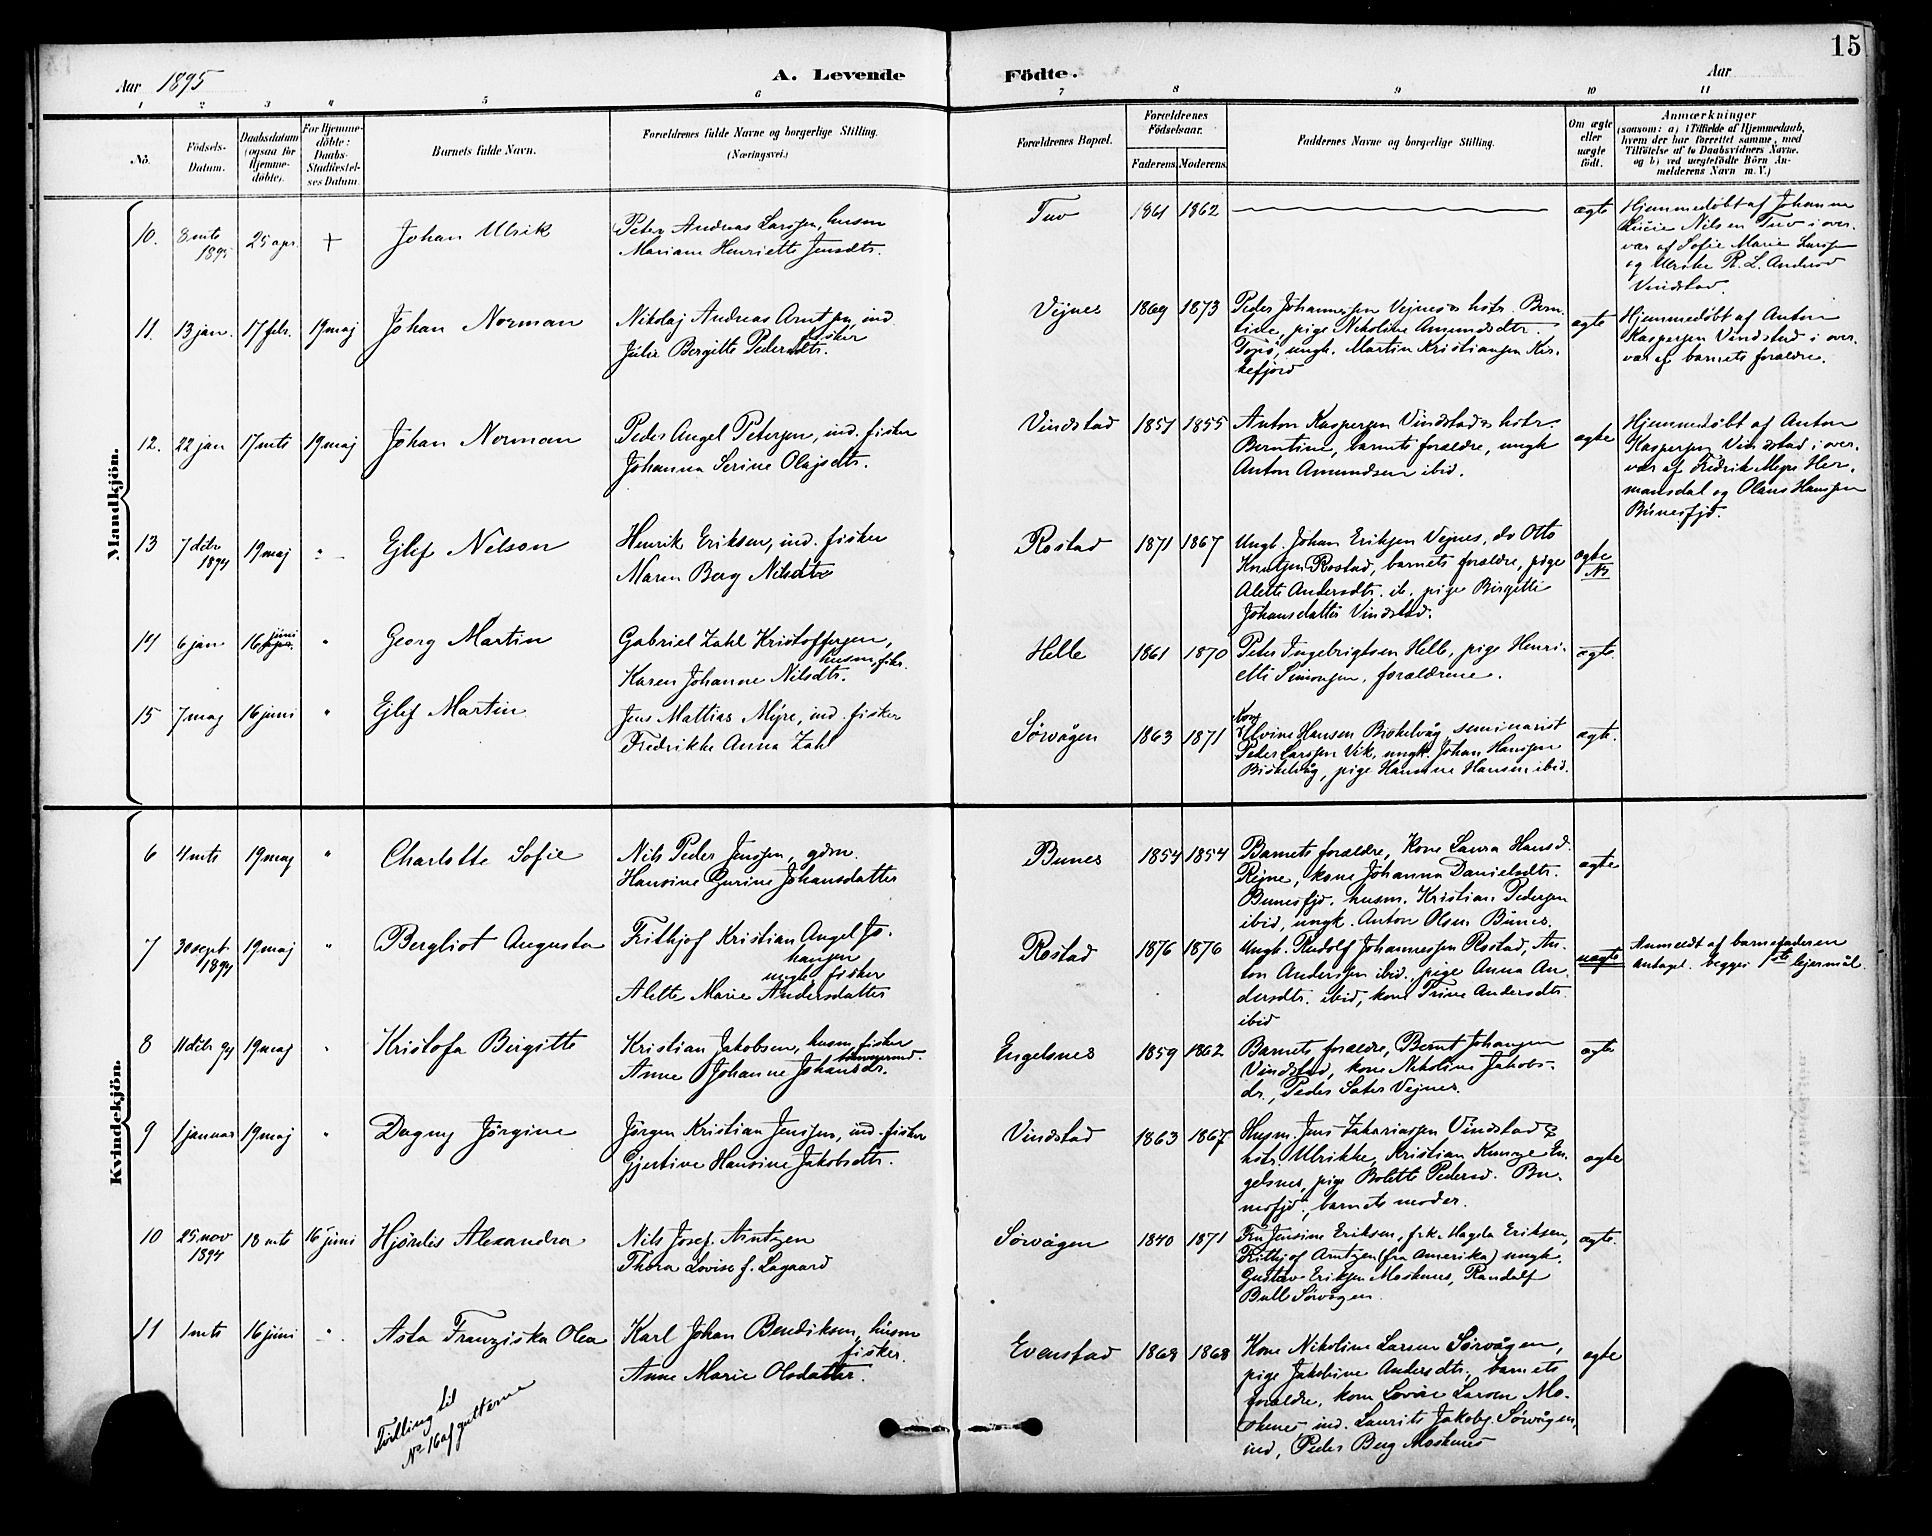 15
Aar 1895
A. Levende
Födte.
Aar
1 2 3 4 5 6 7 8 9 10 11
No.
Födsels-Datum.
Daabsdatum (ogsaa for Hjemme-döbte).
For Hjemme-döbte: Daabs-Stadfæstel-ses Datum.
Barnets fulde Navn.
Forældrenes fulde Navne og borgerlige Stilling.
(Næringsvei.)
Forældrenes Bopæl.
Forældrenes Födselsaar.
Faderens. Moderens.
Faddernes Navne og borgerlige Stilling.
Om ægte eller uægte födt.
Anmærkninger
(saasom: a) i Tilfælde af Hjemmedaab,
hvem der har forrettet samme, med
Tilföielse af to Daabsvidners Navne,
og b) ved uægtefödte Börn An-
melderens Navn m. V.)
Mandkjön.
10. 8 mts 1895 25 apr. + Johan Ulrik
Peter Andreas Larssen, husm
Mariane Henriette Jensdtr.
Tuv 1861 1862 ægte
Hjemmedøbt af Johanna
Lucie Nilsen Tuv i over-
vær af Sofie Marie Larssen
og Ulrike P. L. Andersd
Vindstad
11. 13 jan. 17 febr. 19 maj Johan Norman
Nikolaj Andreas Arntsen, ind
fisker
Julie Bergitte Pedersdtr.
Vejnes 1869 1873
Peder Johannessen Vejnes & hstr. Bern-
tine, pige Nikoline Amundsdtr.
Topö, ungk. Martin Kristiansen Kir-
kefjord
ægte
Hjemmedøbt af Anton
Kaspersen Vindstad i over-
vær af barnets forældre.
12. 22 jan 17 mts 19 maj Johan Norman
Peder Angel Petersen, ind. fisker
Johanna Serine Olajsdtr.
Vindstad 1851 1855
Anton Kaspersen Vindstad & hstr.
Berntine, barnets forældre, ungk
Anton Amundsen ibid.
ægte
Hjemmedøbt af Anton
Kaspersen Vindstad i over-
vær af Fredrik Mejer Her-
mansdal og Olaus Hanssen
Bunesfjd.
13 7 dcbr 1894 19 maj " Ejlef Nelson
Henrik Eriksen, ind. fisker
Maren Berg Nilsdtr
Rostad 1871 1867
Ungk. Johan Eriksen Vejnes, do Otto
Knutsen Rostad, barnets forældre, pige
Alette Andersdtr. ib. pige Birgitte
Johansdatter Vindstad.
ægte
14 6 jan 16 juni " Georg Martin
Gabriel Zahl Kristoffersen,
husm. fisk.
Karen Johanne Nilsdtr.
Helle 1861 1870
Peter Ingebrigtsen Helle, pige Henri-
ette Simonsen, forældrene.
ægte.
15 7 maj 16 juni " Ejlef Martin
Jens Mattias Myre, ind. fisker
Fredrikke Anna Zahl
Sørvågen 1863 1871
Kone Elvine Hansen Biskelvåg seminarist
Peder Larssen Vik, ungk. Johan Hanssen
Biskelvåg, pige Hansine Hansen ibid.
ægte.
Kvindekjön.
6 4 mts 19 maj " Charlotte Sofie
Nils Peder Jenssen, gdm.
Hansine Gurine Johansdatter
Bunes 1854 1854
Barnets forældre, Kone Laura Hansd.
Rejne, kone Johanna Danielsdtr.
Bunesfjd. husm. Kristian Pedersen
ibid, ungk. Anton Olsen Bunes.
ægte
7 30 sept. 1894 19 maj " Bergliot Augusta
Frithjof Kristian Angel Jo-
hansen
ungk. fisker
Alette Marie Andersdatter
Rostad 1876 1876
Ungk. Rudolf Johannessen Rostad, An-
ton Anderssen ibid., pige Anna An-
dersdtr. ibid, kone Trine Andersdtr.
ibid
uægte
Anmeldt af barnefaderen
Antaget. begges 1ste lejermål.
8 11 dcbr 94 19 maj " Kristofa Birgitte
Kristian Jakobsen, husm. fisker
Anne Johanne Johansdr.
Engelsnes 1859 1862
Barnets forældre, Bernt Johansen
Vindstad, kone Nikoline Jakobs-
dr., Peder Sater Vejnes.
ægte
9 1 januar 19 maj " Dagny Jørgine
Jørgen Kristian Jenssen, ind. fisker
Gjertine Hansine Jakobsdtr.
Vindstad 1863 1867
Husm. Jens Zakariassen Vindstad &
hstr. Ulrikke, Kristian Kunge En-
gelsnes, pige Bolette Pedersd. Bu-
nesfjd., barnets moder.
ægte
10 25 nov 1894 18 mts 16 juni Hjørdis Alexandra
Nils Josef. Arntzen
Thora Lovise f. Lagaard
Sørvågen 1840 1871
Fru Jensine Eriksen, frk. Magda Eriksen,
Frithjof Arntzen (fra Amerika) ungk.
Gustav Eriksen Moskenes, Randolf
Bull Sørvågen.
ægte.
11 1 mts 16 juni " Asta Franziska Olea
Karl Johan Bendiksen, husm
fisker.
Anne Marie Olsdatter.
Evenstad 1868 1868
Kone Nikoline Larsen Sørvågen,
pige Jakobine Andersdtr., barnets
forældre, kone Lovise Larsen Mo-
skenes ind. Laurits Jakobs. Sørvågen,
ind. Peder Berg Moskenes
ægte
Tvilling til
No 16 af gutterne